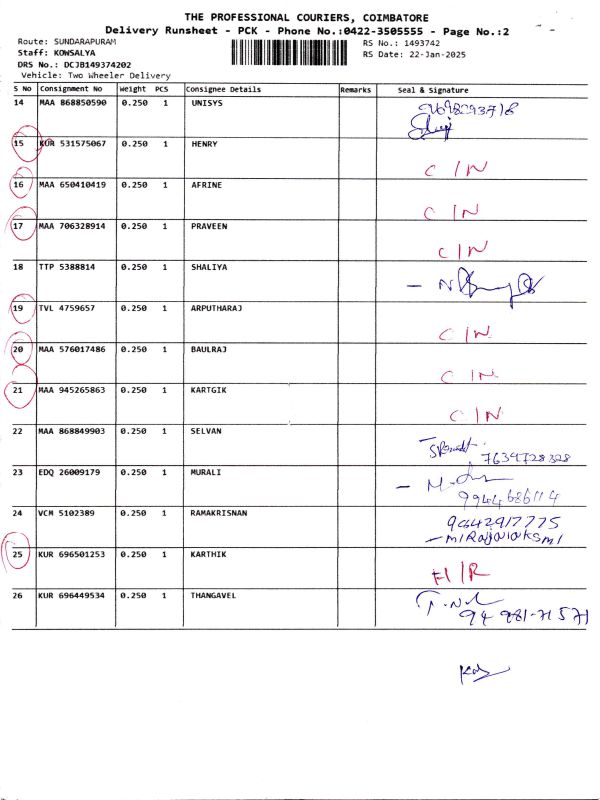 THE PROFESSIONAL COURIERS, COIMBATORE
Delivery Runsheet - PCK - Phone No.:0422-3505555 - Page No.:2
Route: SUNDARAPURAM RS No.: 1493742
Staff: KOWSALYA RS Date: 22-Jan-2025
DRS No.: DCJB149374202
Vehicle: Two Wheeler Delivery
S No Consignment No Weight PCS Consignee Details Remarks Seal & Signature
14 MAA 868850590 0.250 1 UNISYS
15 KUR 531575067 0.250 1 HENRY
C/N
16 MAA 650410419 0.250 1 AFRINE
C/N
17 MAA 706328914 0.250 1 PRAVEEN
C/N
18 TTP 5388814 0.250 1 SHALIYA
19 TVL 4759657 0.250 1 ARPUTHARAJ
C/N
20 MAA 576017486 0.250 1 BAULRAJ
C/N
21 MAA 945265863 0.250 1 KARTGIK
C/N
22 MAA 868849903 0.250 1 SELVAN
7634728328
23 EDQ 26009179 0.250 1 MURALI
9944686114
24 VCM 5102389 0.250 1 RAMAKRISNAN
9042917775
25 KUR 696501253 0.250 1 KARTHIK
26 KUR 696449534 0.250 1 THANGAVEL
94 981-71571